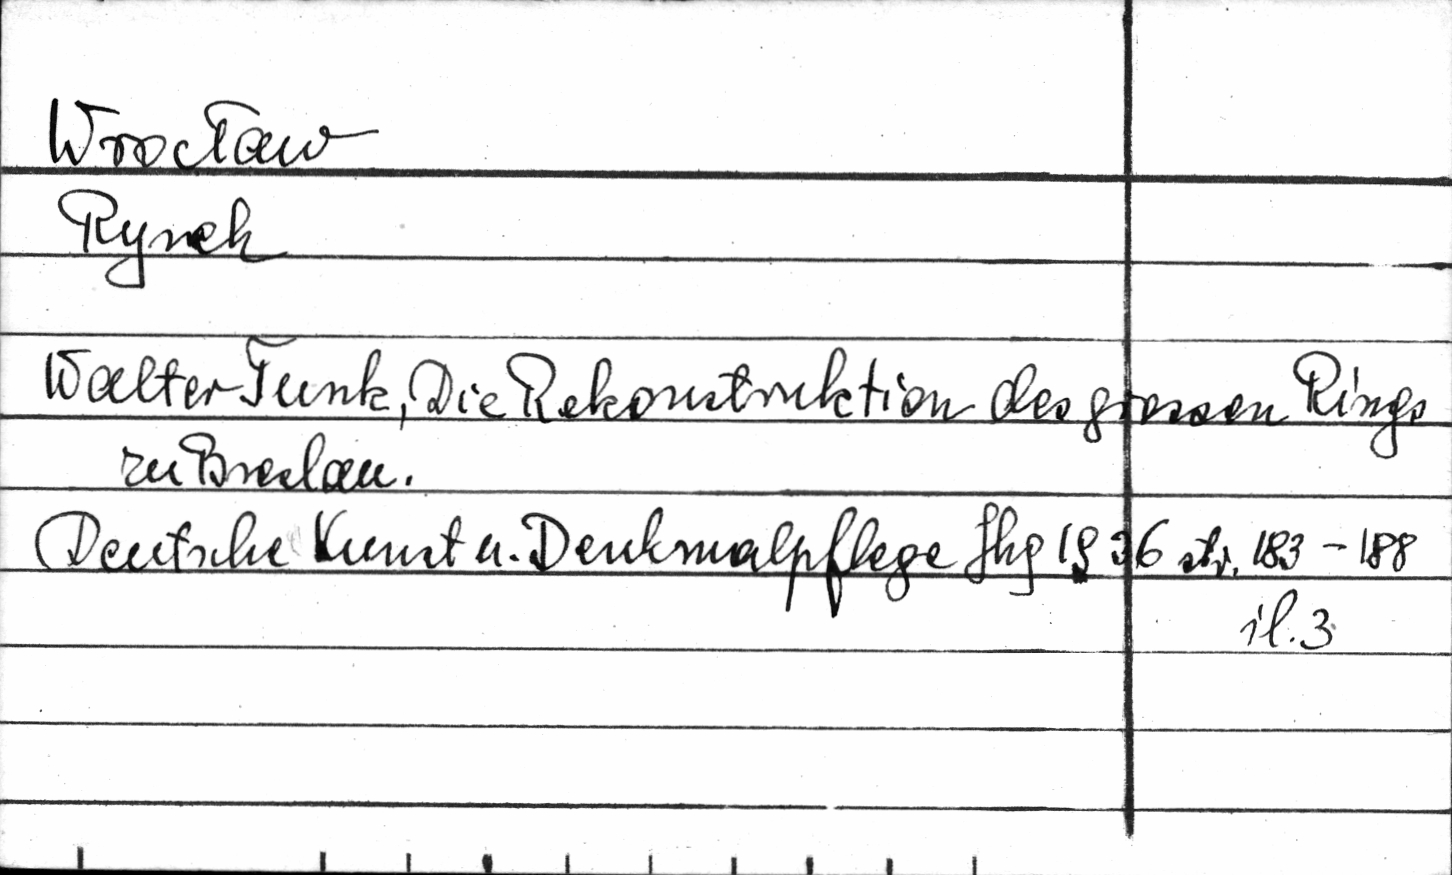 Wrocław
Rynek
Walter Funk, Die Rekonstruktion des grossen Rings
zu Breslau.
Deutsche Kunst u. Denkmalpflege Jhg 1936 str. 183-188
il. 3